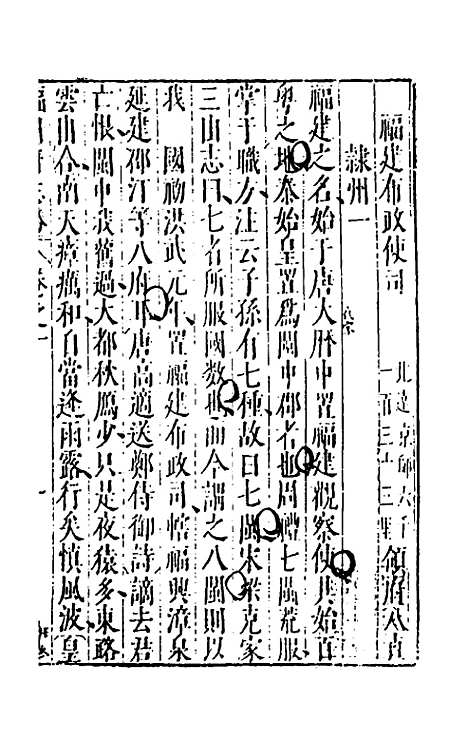 福建布政使司 北達京師六千一百三十三里 領府八直
隸州一
福建之名始于唐大曆中置福建觀察使其始直
粵之地秦始皇置爲閩中郡者也周禮七閩荒服
掌于職方注云子孫有七種故曰七閩宋梁克家
三山志曰七者所服國數也而今謂之八閩則以
我 國初洪武元年置福建布政司轄福興漳泉
延建邵汀等八府耳唐高適送鄭侍御詩謫去君
亡恨閩中我舊過大都秋鴈少只是夜猿多東路
雲山合南天瘴癘和自當逢雨露行矣慎風波皇